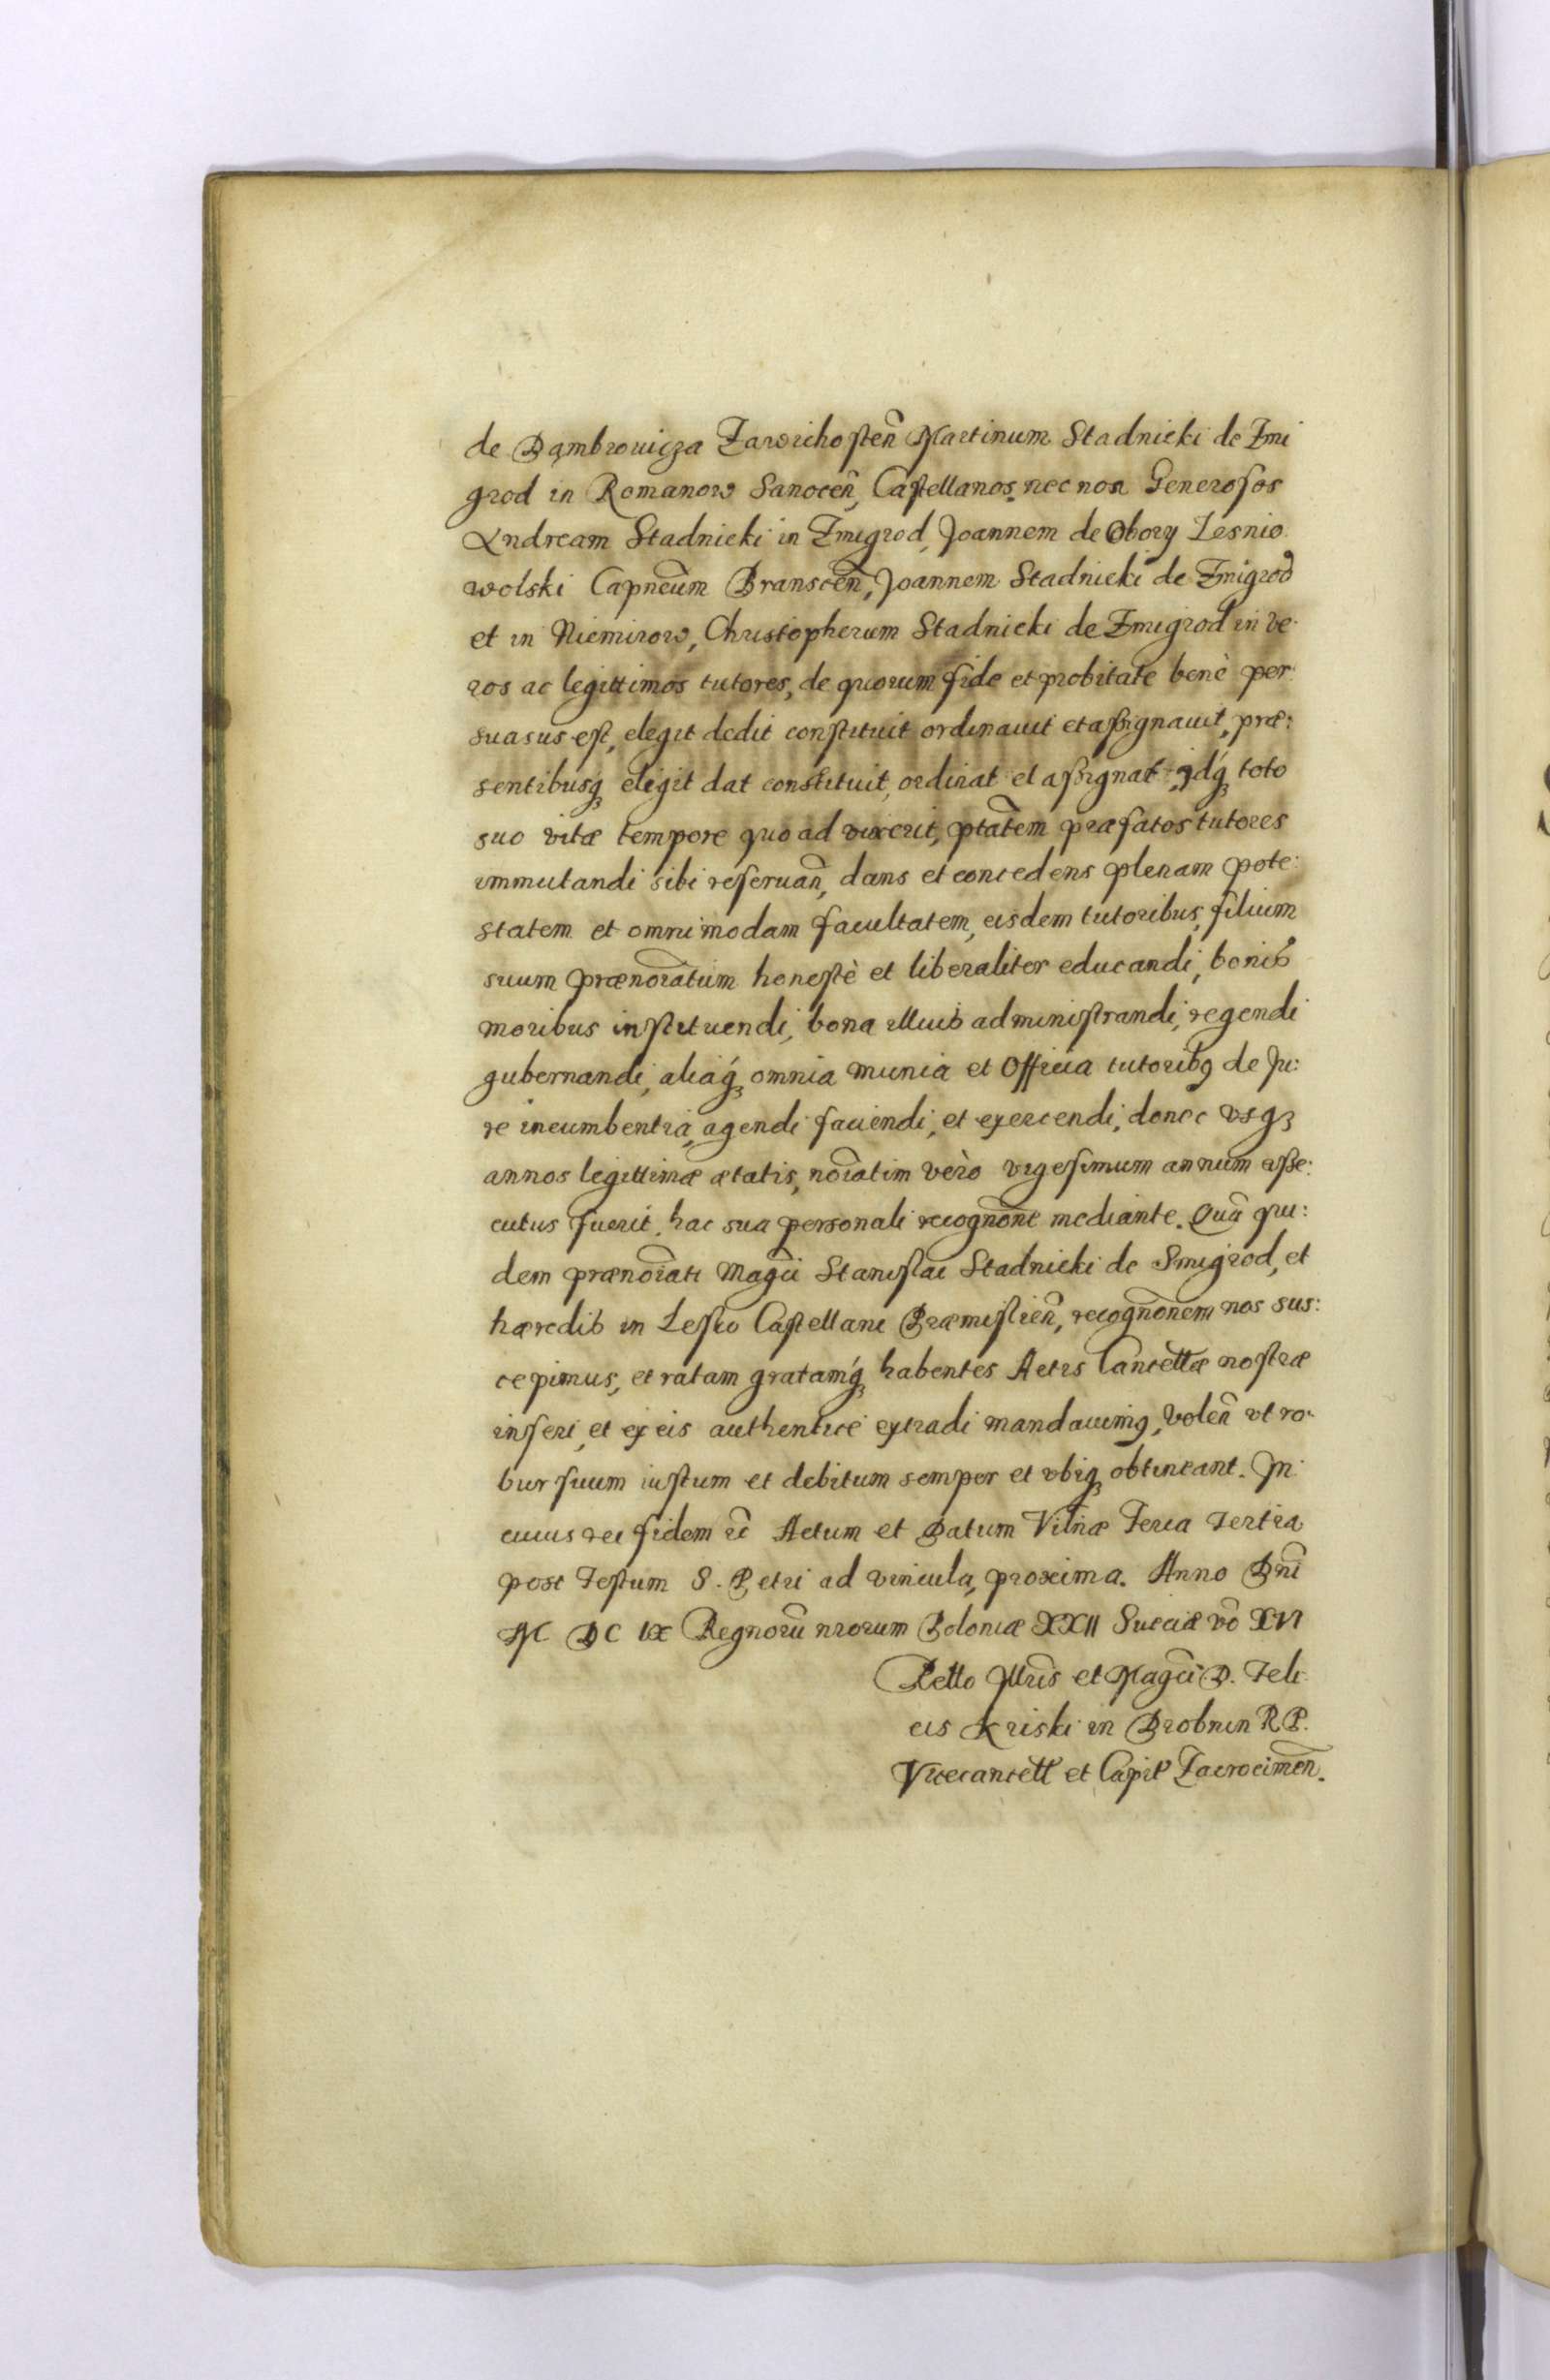 de Dąmbrouicza Zawichosten̄ Martinum Stadnicki de Zmi
grod in Romanow Sanocen̄, Castellanos, nec non Generosos
Andream Stadnicki in Zmigrod, Joannem de Obory Lesnio
wolski Capneūm Branscen̄, Joannem Stadnicki de Zmigrod
et in Niemirow, Christopherum Stadnicki de Zmigrod in ve-
ros ac legittimos tutores, de quorum fide et probitate benè per
suasus est, elegit dedit constituit ordinauit et assignauit, præ:
sentibusq₃ eligit dat constituit, ordinat et assignat, idq́₃ toto
suo vitæ tempore quo ad vixerit, ptātem præfatos tutores
immutandi sibi reseruan̄, dans et concedens plenam pote:
statem et omnimodam facultatem, eisdem tutoribus, filium
suum prænoīatum honestè et liberaliter educandi, bonis
moribus instituendi, bona illius administrandi, regendi
gubernandi, aliaq́₃ omnia munia et Officia tutoribꝰ de Ju:
re incumbentia, agendi faciendi, et exercendi, donec vsq₃
annos legittimæ ætatis, noīatim verò vigesimum annum asse:
cutus fuerit, hac sua personali recognōne mediante. Quā qui:
dem prænoīati Magci Stanislai Stadnicki de Smigrod, et
hæredis in Lesko Castellani Præmislien̄, recognōnem nos sus:
cepimus, et ratam gratamq́₃ habentes Actis Cancellæ nostræ
inseri, et ex eis authenticè extradi mandauimꝰ, Volen̄ vt ro-
bur suum iustum et debitum semper et vbiq₃ obtineant. In
cuius rei fidem etc̄ Actum et Datum Vilnæ Feria Tertia
post Festum S. Petri ad vincula, proxima. Anno Dn̄i
M DC IX Regnorū nrorum Poloniæ XXII Sueciæ vō XVI
Rello Illris et Magci D. Feli
cis Kriski in Drobnin R. P.
Vicecancell et Capit Zacrocimen̄.